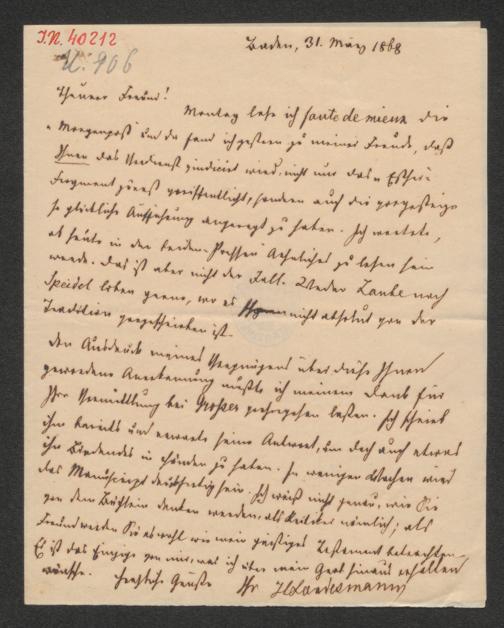 I.N. 40212
U. 906
Baden, 31. März 1868
Theurer Freund!
Montag lese ich faute de mieux die
„Morgenpost“ und da fand ich gestern zu meiner Freude, daß
Ihnen das Verdienst vindicirt wird, nicht nur das „Esther“
Fragment zuerst veröffentlicht, sondern auch die vorgestrige
so glückliche Aufführung angeregt zu haben. Ich wartete,
ob heute in den beiden „Pressen“ Aehnliches zu lesen sein
werde. Das ist aber nicht der Fall. Weder Laube noch
Speidel loben gerne, wo es nicht absolut von der
Tradition vorgeschrieben ist.
Den Ausdruck meines Vergnügens über diese Ihnen
gewordene Anerkennung mußte ich meinem Dank für
Ihre Vermittlung bei vorhergehen lassen. Ich schrieb
ihm bereits und erwarte seine Antwort, um doch auch etwas
ihn Bindendes in Händen zu haben. In wenigen Wochen wird
das Manuscript druckfertig sein. Ich weiß nicht genau, wie Sie
von dem Büchlein denken werden, als Kritiker nämlich; als
Freund werden Sie es wohl wie mein geistiges Testament betrachten.
Es ist das Einzige von mir, was ich über mein Grab hinaus erhalten
wünsche. Herzliche Grüße Ihr HLandesmann